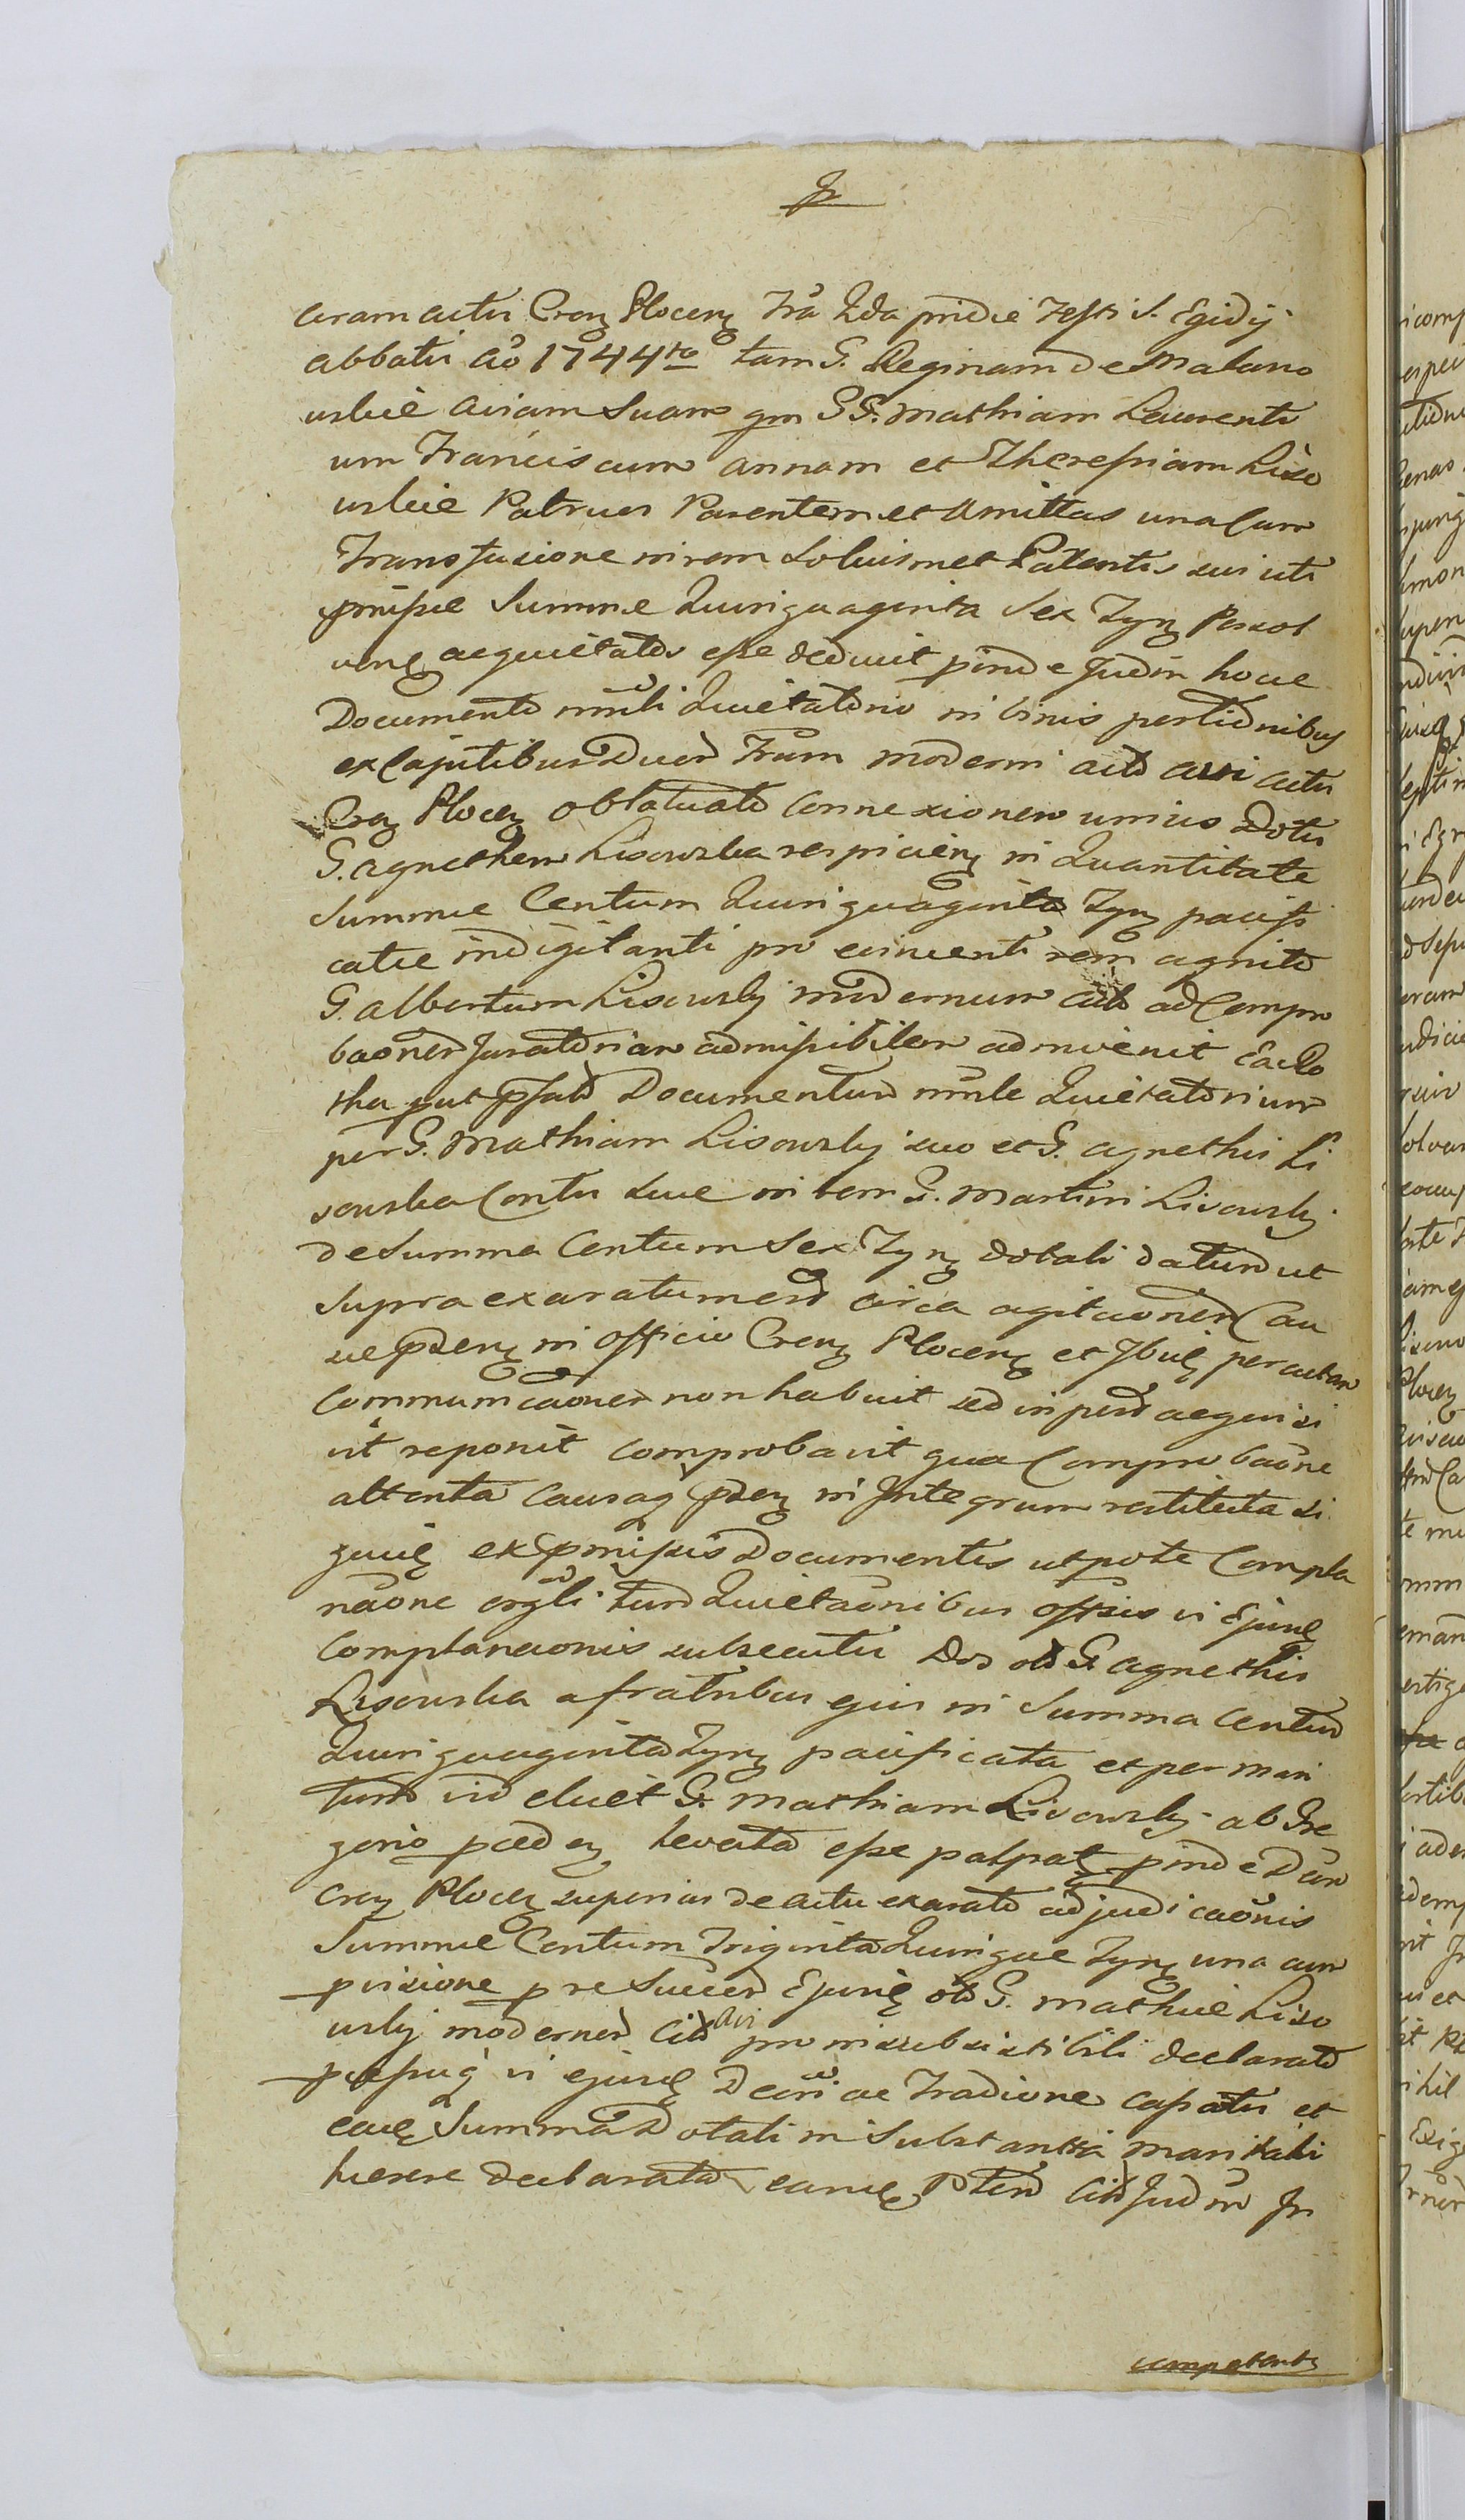 Jr
coram actis Cren Plocen Fra 2da pridie Festi S. Egidij
Abbatis Ao 1744to tam G. Reginam de Malano
wskie aviam suam qm GG. Mathiam Laurenti
um Franciscum Annam et Theresiam Liso
wskie Patruos Parentem et Amittas una cum
Transfusione in rem soluismet Patentis sui uti
pmissae Summae Quinquaginta Sex Tyn Persol
ven aequietatos esse deduxit pinde Judm hocce
Documento mnli Quietatorio in binis portionibus
ex capitibus Duor Frum moderni acto avi actis
Cren Plocen oblatuato Connexionem unius Dotis
G. Agnethem Lisowska respicien in Quantitate
Summae Centum Quinquaginta Tyn pacifi
catae indigitanti pro evincenti rem agnito
G. Albertum Lisowsky modernum Citt ad Compro
baonem Juratoriam admissibilem adinvenit Eacto
tha put psato Documentum mnle Quietatorium
per G. Mathiam Lisowsky suo et G. Agnethis Li
sowska Contis suae in rem G. Martini Lisowsky
de Summa Centum Sex Tyn dotali datum ut
supra exaratum circa agitaonem Cau
sae psen in Officio Cren Plocen et Ibid per actum
Communicaonem non habuit sed in aequisi
vit reponit comprobavit qua Comprobaone
attenta Causaq psen in Integrum restituta si
quid ex pmissis Documentis utpote Compla
naone orgli tum Quietaonibus offsis vi Ejusd
Complanaonis subsecutis Dos G. Agnethis
Lisowska a fratribus ejus in Summa Centum
Quinquaginta Tyn pacificata et per mari
tum G. Mathiam Lisowsky ab Gre
gorio levata esse patpat pinde Dcm
Cren Plocen superius de actu exarato adjudicaonis
Summae Centum Triginta Quinque Tyn una cum
pvisione p re Succer Ejusd G. Mathiae Liso
wsky modernor Citt Avi pro insubsistibili declarato
vi ejusd Dcri ac Tradione capatis et
ead Summa Dotali in Substantia maritali
haerere declarata eand Citt Judm Jn
competenti